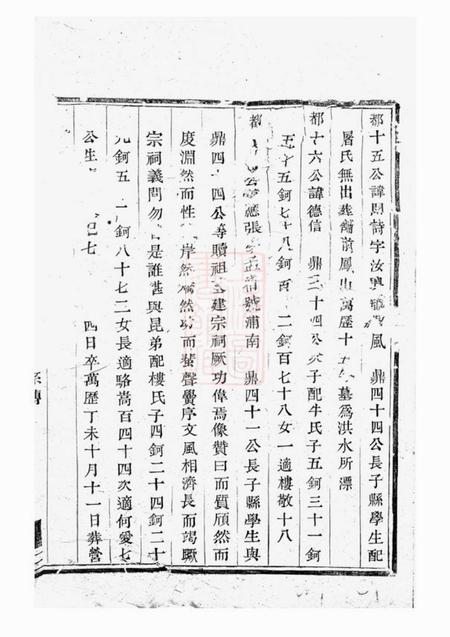 都十五公諱 詩字汝興 鳳 鼎四十四公長子縣學生配
屠氏無出葬 前鳳山萬歷十 年墓為洪水所漂
都十六公諱德信 鼎三十四公 子配牛氏子五鈳三十一鈳
五十五鈳七十八鈳百 二鈳百七十八女一適樓敬十八
都 公 應張字孟 號浦南 鼎四十一公長子縣學生與
鼎四十四公等贖祖 建宗祠厥功偉焉像贊曰而質頎然而
度淵然而性 岸然 然 而蜚聲黌序文風相濟長而竭蹶
宗祠義問勿 是誰 與昆弟配樓氏子四鈳二十四鈳二十
九鈳五十 鈳八十七三女長適駱嵩百四十四次適何愛七
公生 巳七 四日卒萬歷丁未十月十一日葬營
系傳